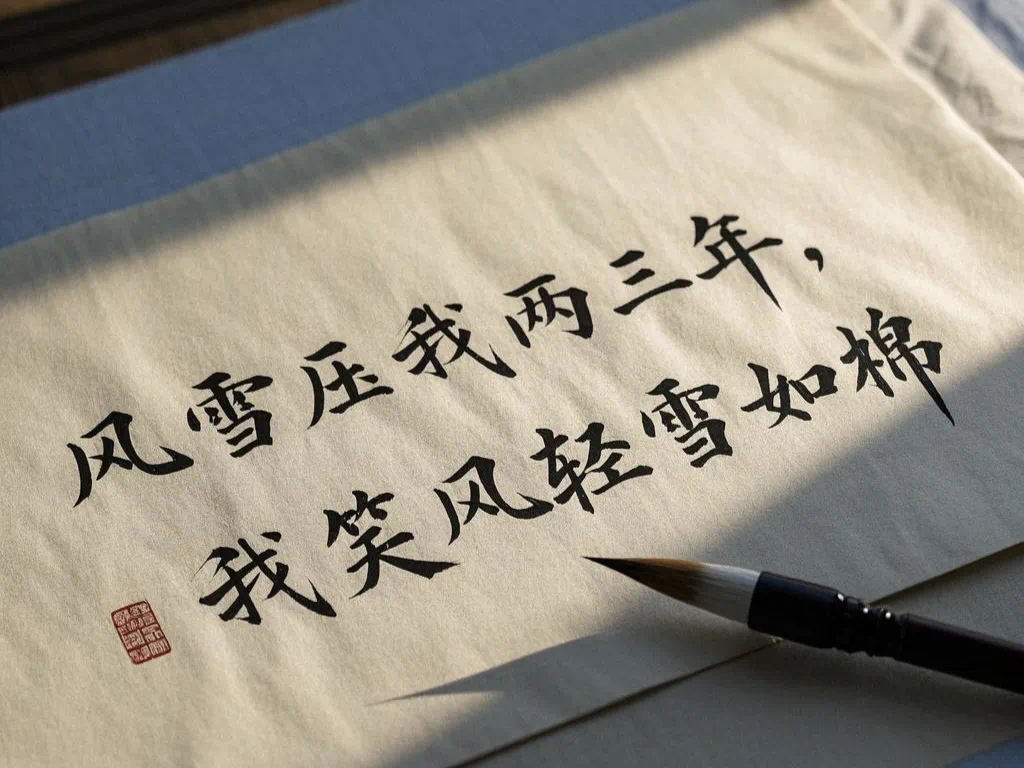 风雪压我两三年，
我笑风轻雪如棉